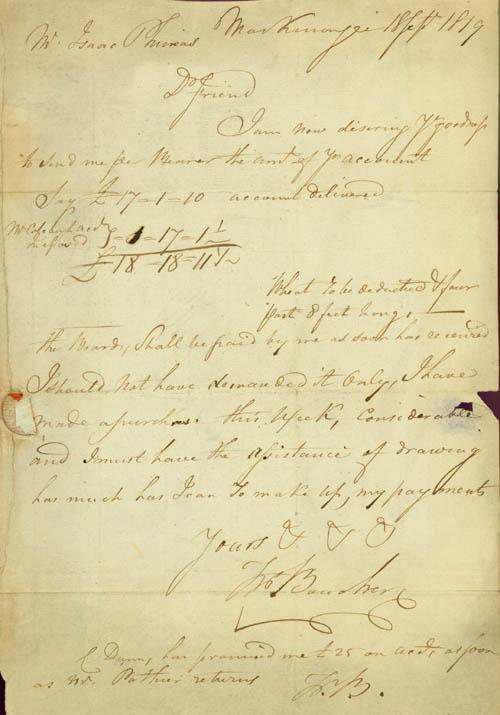 Mr. Isaac Phineas Maskinongé 18 Sept 1819
Dr. Friend
I am now desiring Yr. goodness
to send me per Bearer the amt of yr account
Say £ 17=1=10 account delivered
Mr. acct.
inclosed } 1=17=1½
£ 18=18=11½
Wheat to be deducted & four
post 8 feet long,
the Boards, Shall be paid by me as soon has received
I should not have demanded it Only, I have
made a purchase this Week, Considerable
and I must have the assistance of drawing
has much has I can to make up, my payments
Yours & & &
Boucher
C Dunn, has promised me £25 on acct, as soon
as Mr. Pothier returns B.